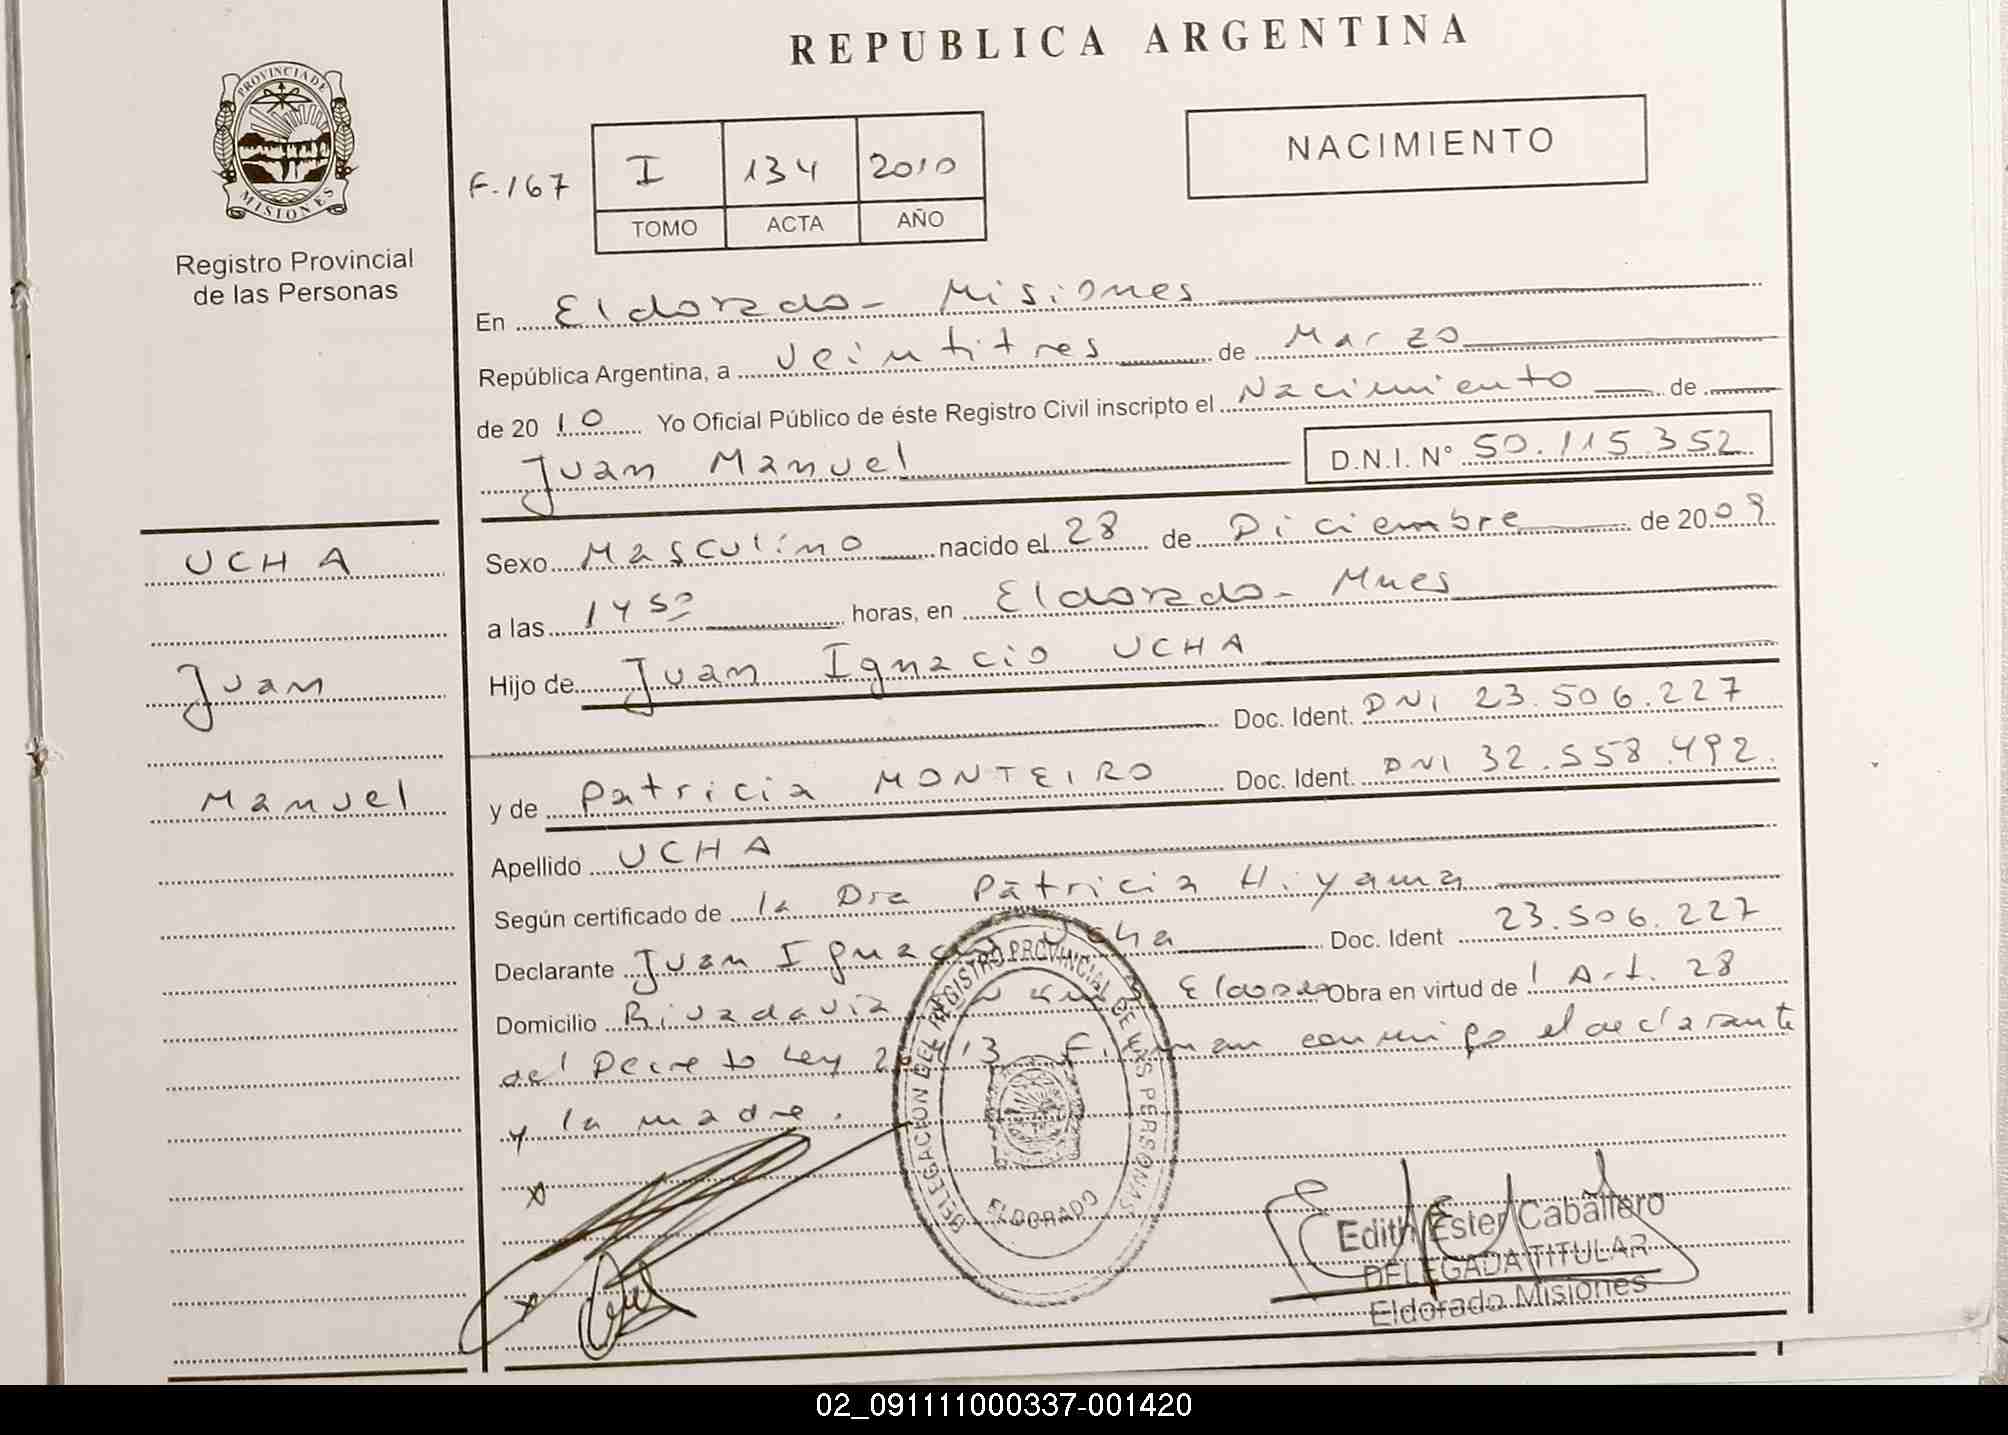 REPUBLICA ARGENTINA
PROVINCIA DE
MISIONES
Registro Provincial
de las Personas
F.167
I 134 2010
TOMO ACTA AÑO
NACIMIENTO
En Eldorado - Misiones
República Argentina, a veintitres de Marzo
de 2010 Yo Oficial Público de éste Registro Civil inscripto el Nacimiento de
Juan Manuel D.N.I. N° 50.115.352
UCHA
Juan
Manuel
Sexo Masculino nacido el 28 de Diciembre de 2009
a las 1450 horas, en Eldorado - Mnes
Hijo de Juan Ignacio UCHA
Doc. Ident. DNI 23.506.227
y de Patricia MONTEIRO Doc. Ident. DNI 32.558.492.
Apellido UCHA
Según certificado de la Dra Patricia Hiyama
Declarante Juan Ignacio Ucha Doc. Ident 23.506.227
Domicilio Rivadavia Obra en virtud de l Art. 28
del Decreto Ley Firman conmigo el declarante
y la madre.
x
x
DELEGACION DEL REGISTRO PROVINCIAL DE LAS PERSONAS
ELDORADO
Edith Ester Caballero
DELEGADA TITULAR
Eldorado Misiones
02_091111000337-001420